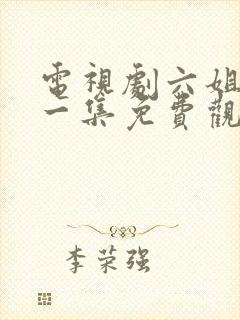 電視劇六姐
一集免費觀
李荣强